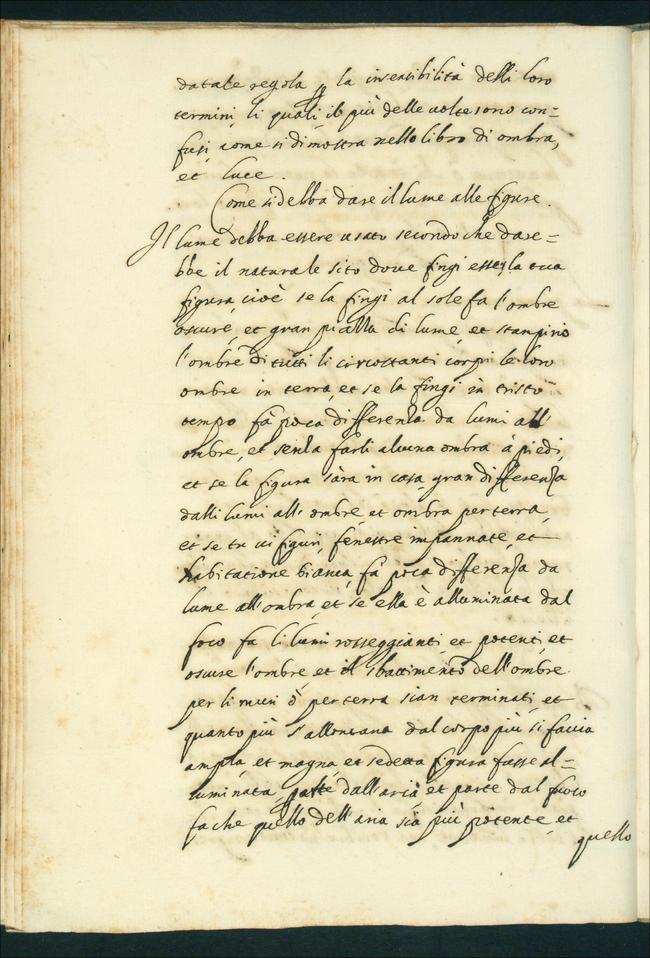 datale regola p la insensibilità delli loro
termini, li quali, il più delle uolte sono con=
fusi, come si dimostra nello libro di ombra,
et luce.
Come si debba dare il lume alle figure.
Il lume debba essere usato secondo che dare=
bbe il naturale sito doue fingi esser la tua
figura, cioè se la fingi al sole fa l'ombre
oscure, et gran piazza di lume, et stampino
l'ombre di tutti li circostanti corpi le loro
ombre in terra, et se la fingi in tristo
tempo fà poca differenza da lumi all'
ombre, et senza farli alcuna ombra à piedi,
et se la figura sàra in casa, gran differenza
dalli lumi all'ombre, et ombra per terra,
et se tu ui figuri, fenestre impannate, et
habitatione bianca, fà poca differenza da
lume all'ombra, et se ella è alluminata dal
foco fa li lumi rosseggianti, et potenti, et
oscure l'ombre, et il sbattimento dell'ombre
per li muri ò per terra sian terminati, et
quanto più s'allontana dal corpo più si faccia
ampla, et magna, et se detta figura fusse al=
luminata, parte dall'aria, et parte dal fuoco
fa che quello dell'aria sia più potente, et
quello